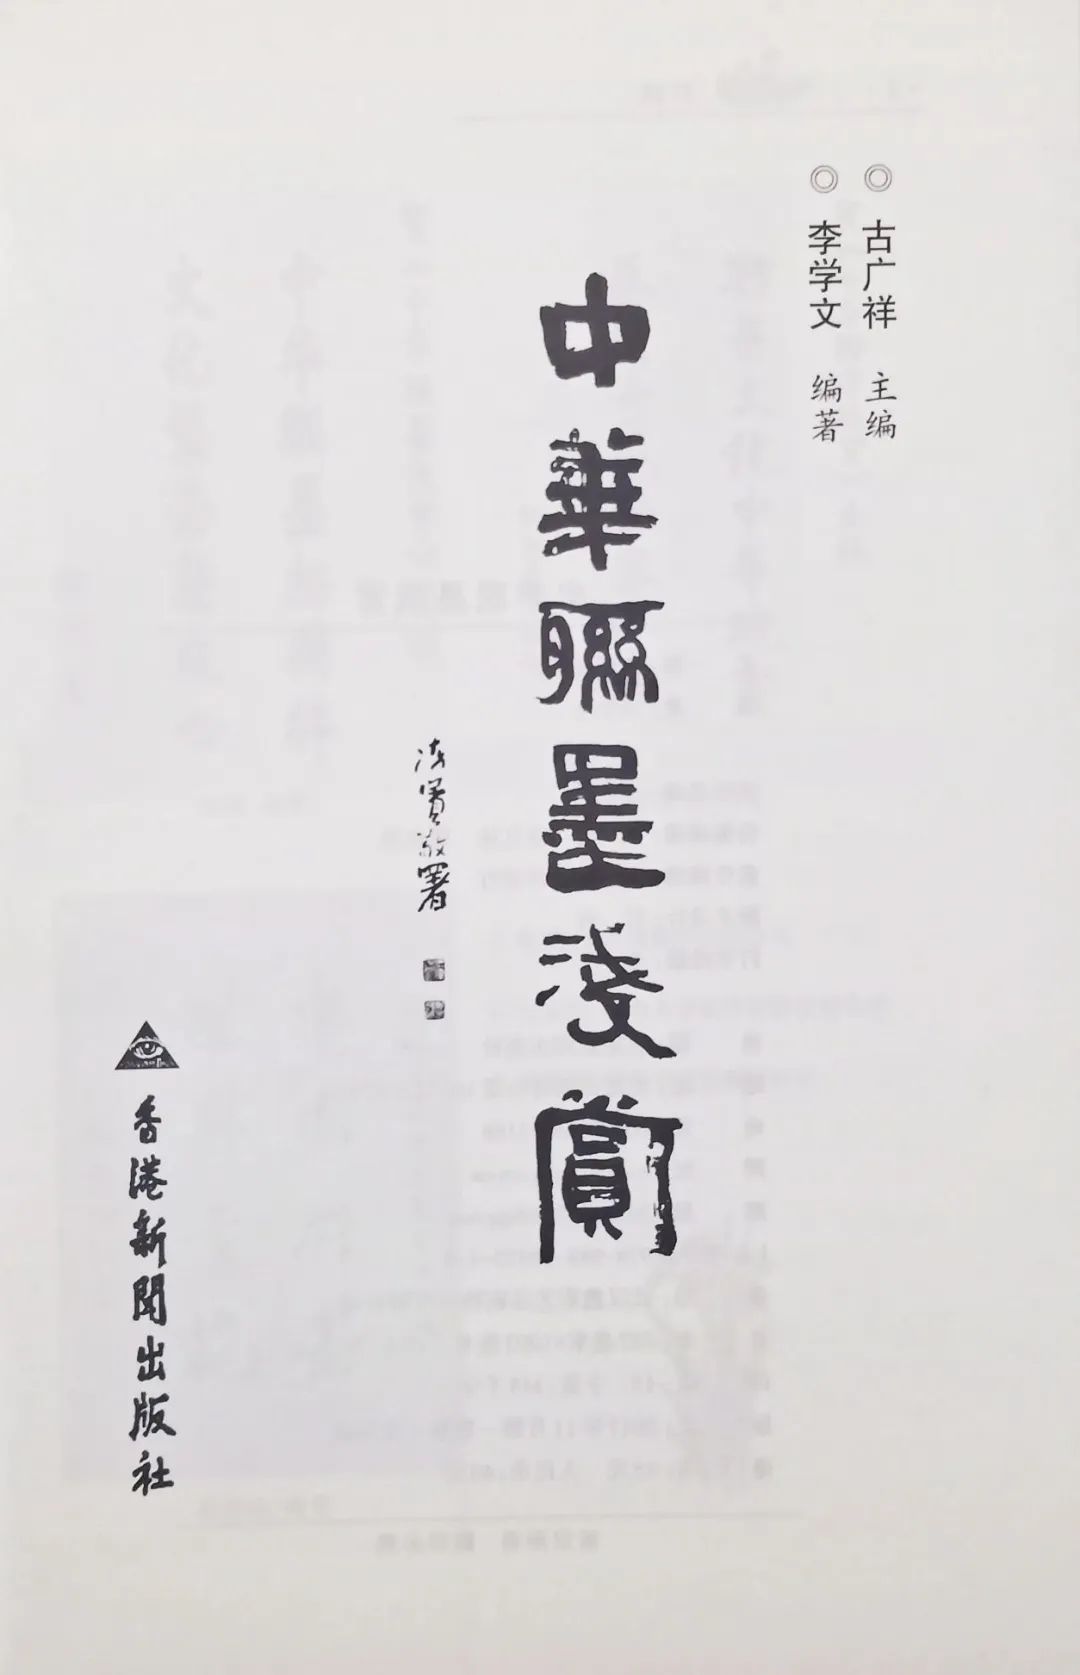 ◎ 古广祥 主编
◎ 李学文 编著
中華聯墨淺賞
敬署
香港新聞出版社